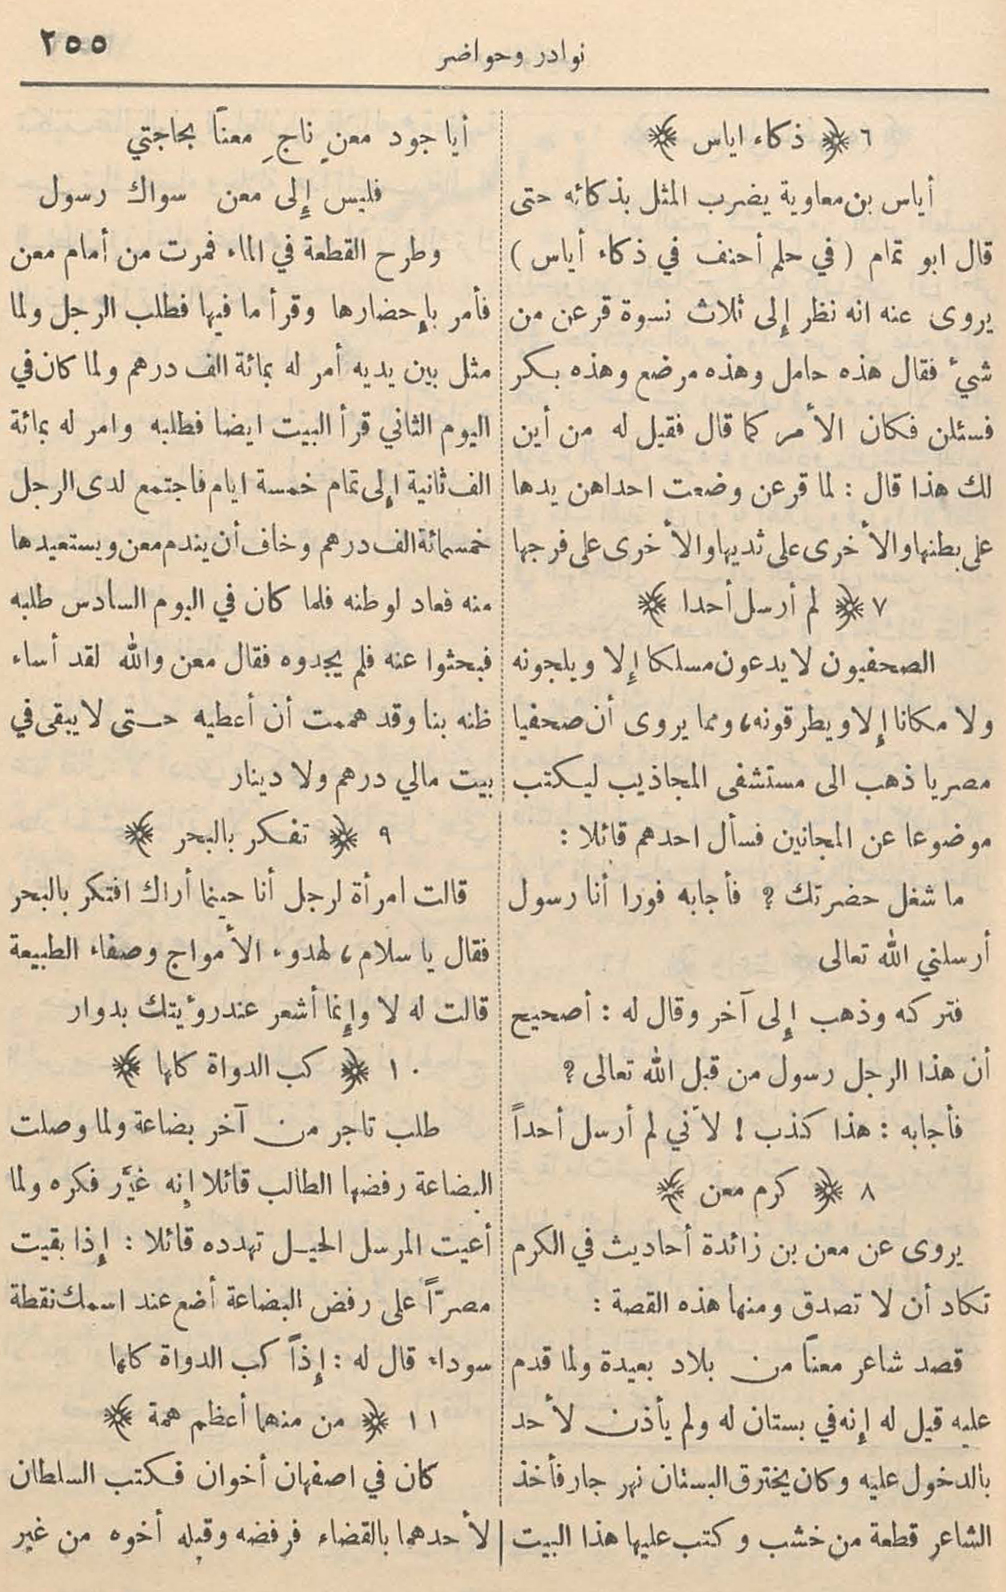 نوادر وحواضر
٢٥٥
٦ ﴿ ذكاء اياس ﴾
أياس بن معاوية يضرب المثل بذكائه حتى
قال ابو تمام ( في حلم أحنف في ذكاء أياس )
يروى عنه انه نظر إلى ثلاث نسوة قرعن من
شيء فقال هذه حامل وهذه مرضع وهذه بكر
فسئلن فكان الأمر كما قال فقيل له من أين
لك هذا قال : لما قرعن وضعت احداهن يدها
على بطنها والأخرى على ثديها والأخرى على فرجها
٧ ﴿ لم أرسل أحدا ﴾
الصحفيون لا يدعون مسلكا إلا ويلجونه
ولا مكانا إلا ويطرقونه، ومما يروى أن صحفيا
مصريا ذهب الى مستشفى المجاذيب ليكتب
موضوعا عن المجانين فسأل احدهم قائلا :
ما شغل حضرتك ؟ فأجابه فورا أنا رسول
أرسلني الله تعالى
فتركه وذهب إلى آخر وقال له : أصحيح
أن هذا الرجل رسول من قبل الله تعالى ؟
فأجابه : هذا كذب ! لأني لم أرسل أحداً
٨ ﴿ كرم معن ﴾
يروى عن معن بن زائدة أحاديث في الكرم
تكاد أن لا تصدق ومنها هذه القصة :
قصد شاعر معناً من بلاد بعيدة ولما قدم
عليه قيل له إنه في بستان له ولم يأذن لأحد
بالدخول عليه وكان يخترق البستان نهر جار فأخذ
الشاعر قطعة من خشب وكتب عليها هذا البيت
أيا جود معنٍ ناجِ معناً بحاجتي
فليس إلى معن سواك رسول
وطرح القطعة في الماء فمرت من أمام معن
فأمر بإحضارها وقرأ ما فيها فطلب الرجل ولما
مثل بين يديه أمر له بمائة الف درهم ولما كان في
اليوم الثاني قرأ البيت ايضا فطلبه وامر له بمائة
الف ثانية إلى تمام خمسة ايام فاجتمع لدى الرجل
خمسمائة الف درهم وخاف أن يندم معن ويستعيدها
منه فعاد لوطنه فلما كان في اليوم السادس طلبه
فبحثوا عنه فلم يجدوه فقال معن والله لقد أساء
ظنه بنا وقد هممت أن أعطيه حتى لا يبقى في
بيت مالي درهم ولا دينار
٩ ﴿ تفكر بالبحر ﴾
قالت امرأة لرجل أنا حينما أراك افتكر بالبحر
فقال يا سلام، لهدوء الأمواج وصفاء الطبيعة
قالت له لا وإنما أشعر عند رؤيتك بدوار
١٠ ﴿ كب الدواة كلها ﴾
طلب تاجر من آخر بضاعة ولما وصلت
البضاعة رفضها الطالب قائلا إنه غيَّر فكره ولما
أعيت المرسل الحيل تهدده قائلا : إذا بقيت
مصرّاً على رفض البضاعة أضع عند اسمك نقطة
سوداء قال له : إذاً كب الدواة كلها
١١ ﴿ من منهما أعظم همة ﴾
كان في اصفهان أخوان فكتب السلطان
لأحدهما بالقضاء فرفضه وقبله أخوه من غير